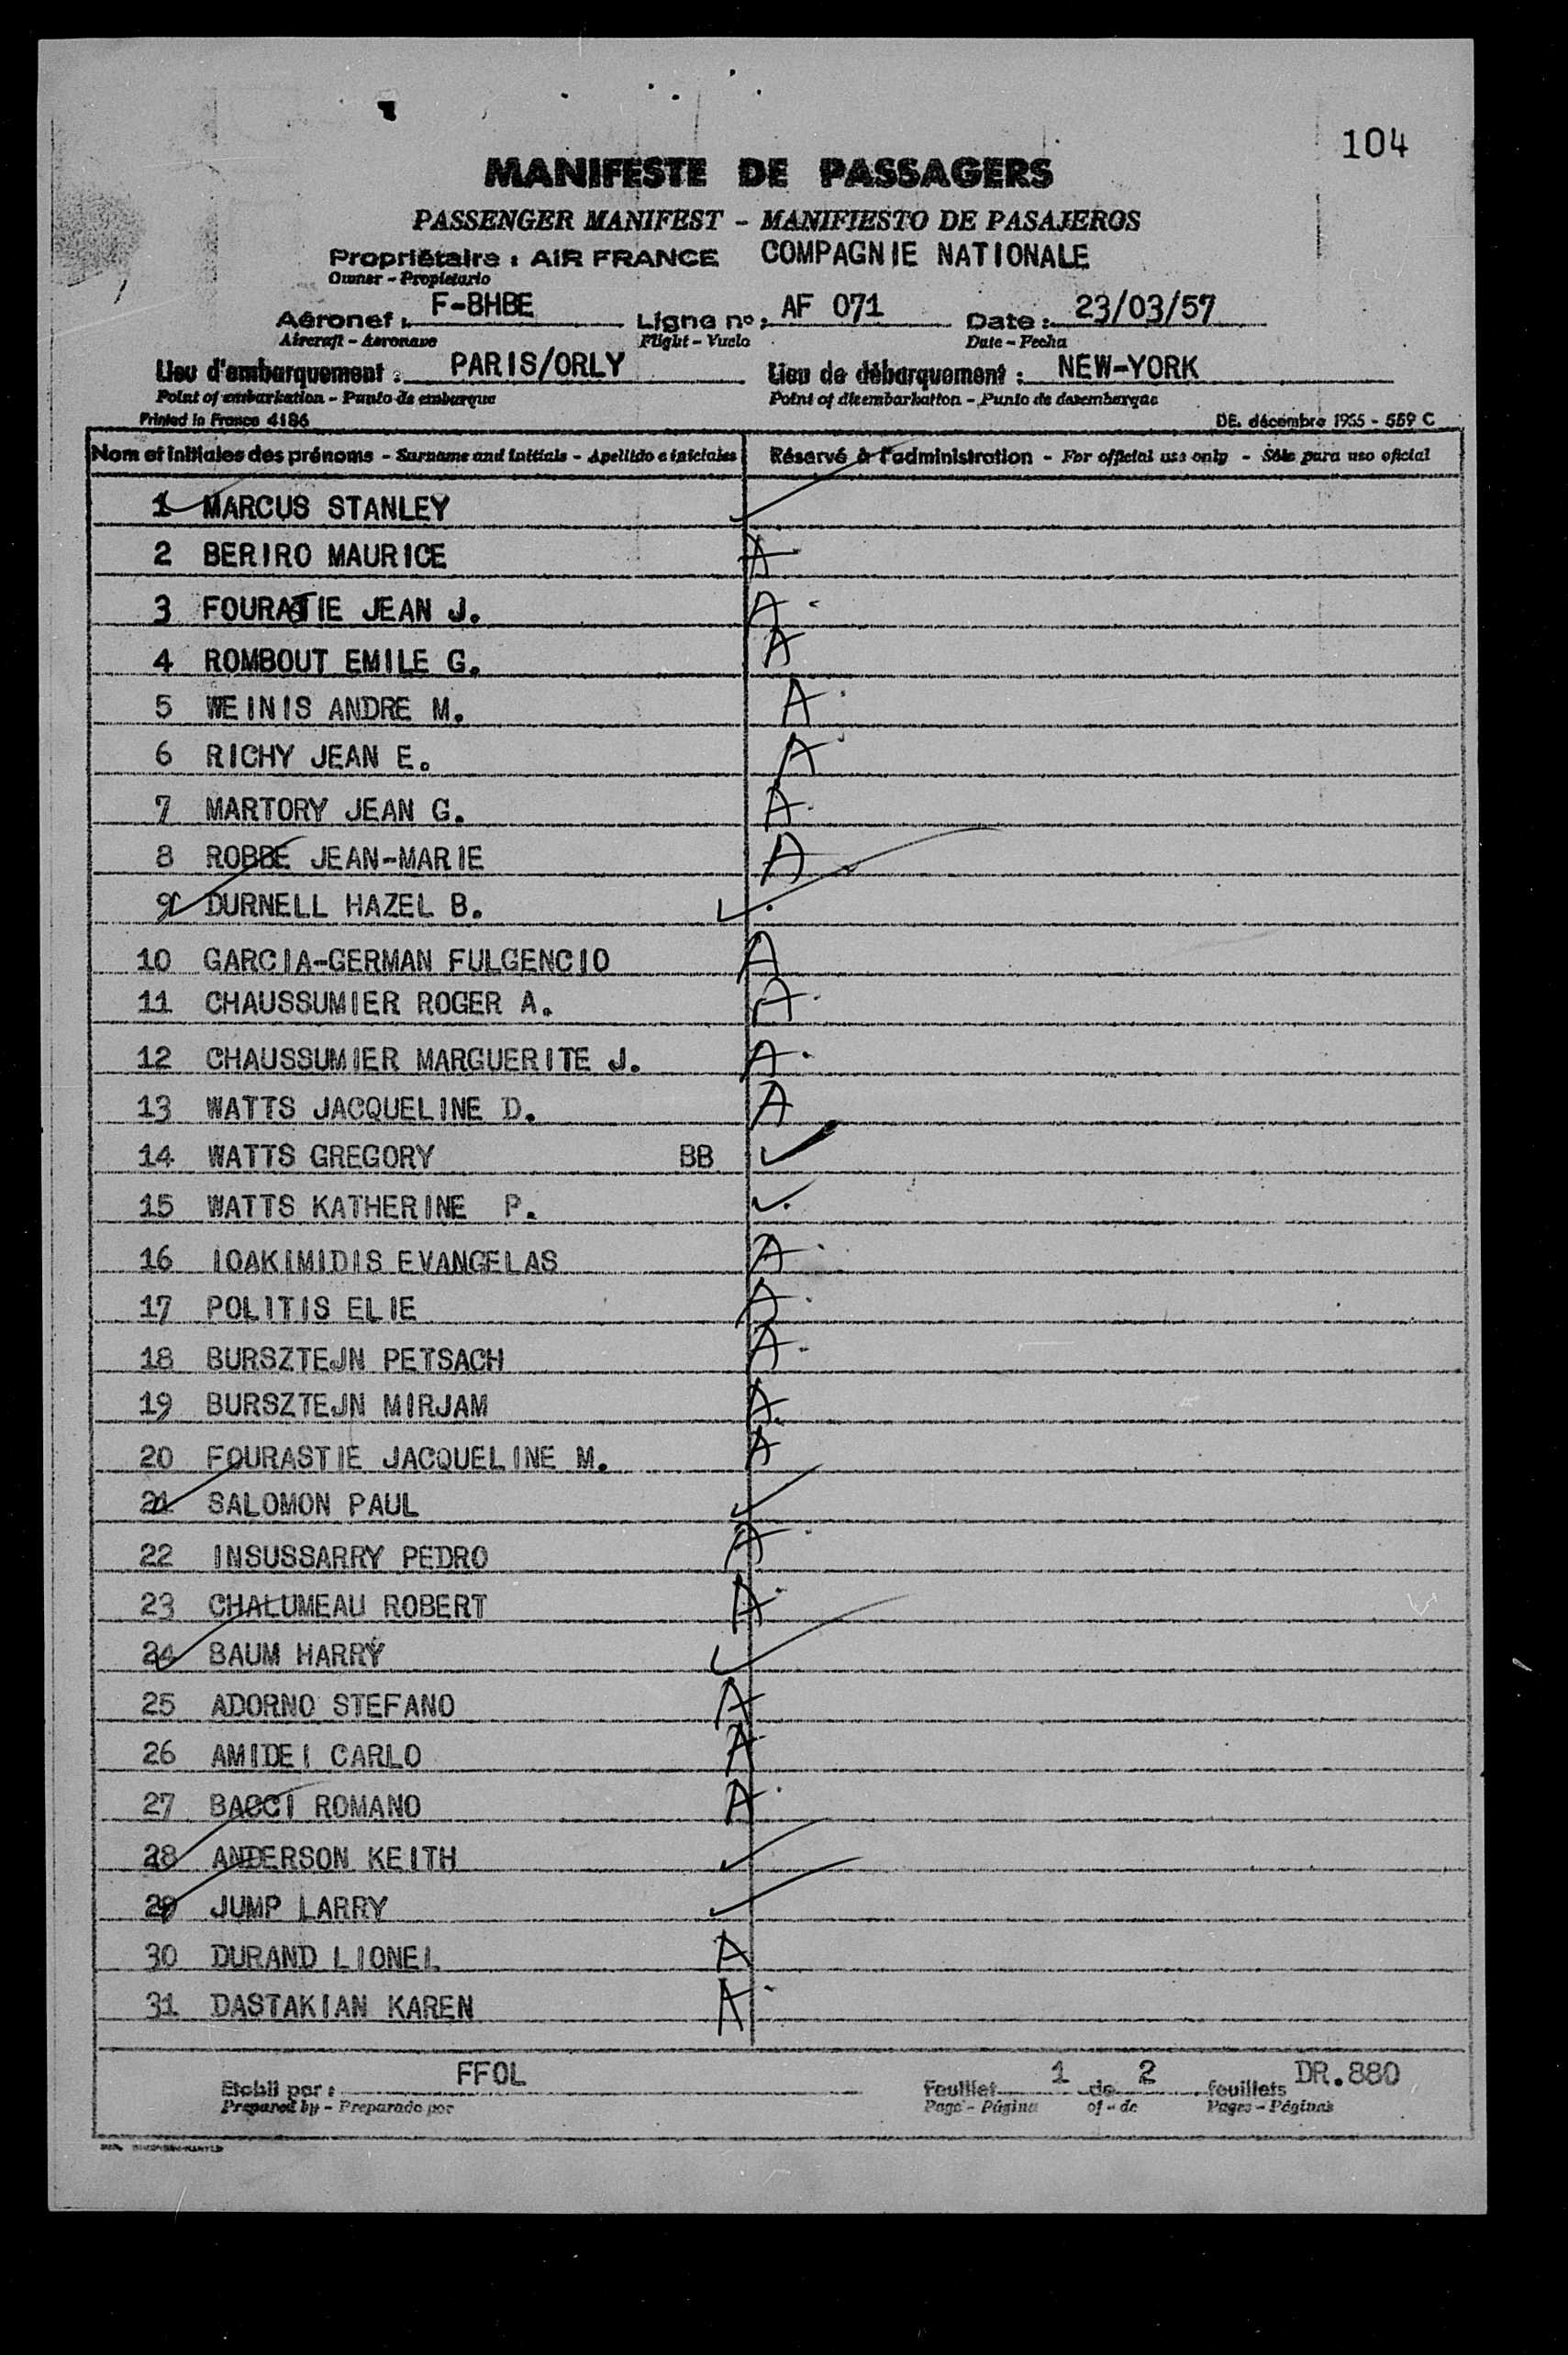 104
MANIFESTE DE PASSAGERS
PASSENGER MANIFEST - MANIFIESTO DE PASAJEROS
Propriétaire : AIR FRANCE COMPAGNIE NATIONALE
Owner - Propietario
Aéronef : F-BHBE Ligne no : AF 071 Date : 23/03/57
Aircraft - Aeronave Flight - Vuelo Date - Fecha
Lieu d'embarquement : PARIS/ORLY Lieu de débarquement : NEW-YORK
Point of embarkation - Punto de embarque Point of disembarkation - Punto de desembarque
Printed in France 4186 DE. décembre 1955 - 559 C
Nom et initiales des prénoms - Surname and initials - Apellido e iniciales Réservé à l'administration - For official use only - Sólo para uso oficial
1 MARCUS STANLEY
2 BERIRO MAURICE A
3 FOURASTIE JEAN J. A
4 ROMBOUT EMILE G. A
5 WEINIS ANDRE M. A
6 RICHY JEAN E. A
7 MARTORY JEAN G. A
8 ROBBE JEAN-MARIE A
9 DURNELL HAZEL B.
10 GARCIA-GERMAN FULGENCIO A
11 CHAUSSUMIER ROGER A. A
12 CHAUSSUMIER MARGUERITE J. A
13 WATTS JACQUELINE D. A
14 WATTS GREGORY BB
15 WATTS KATHERINE P.
16 IOAKIMIDIS EVANGELAS A
17 POLITIS ELIE A
18 BURSZTEJN PETSACH A
19 BURSZTEJN MIRJAM A
20 FOURASTIE JACQUELINE M. A
21 SALOMON PAUL
22 INSUSSARRY PEDRO A
23 CHALUMEAU ROBERT A
24 BAUM HARRY
25 ADORNO STEFANO A
26 AMIDEI CARLO A
27 BACCI ROMANO A
28 ANDERSON KEITH
29 JUMP LARRY
30 DURAND LIONEL A
31 DASTAKIAN KAREN A
Etabli par : FFOL Feuillet 1 de 2 feuillets DR.880
Prepared by - Preparado por Page - Página of - de Pages - Páginas